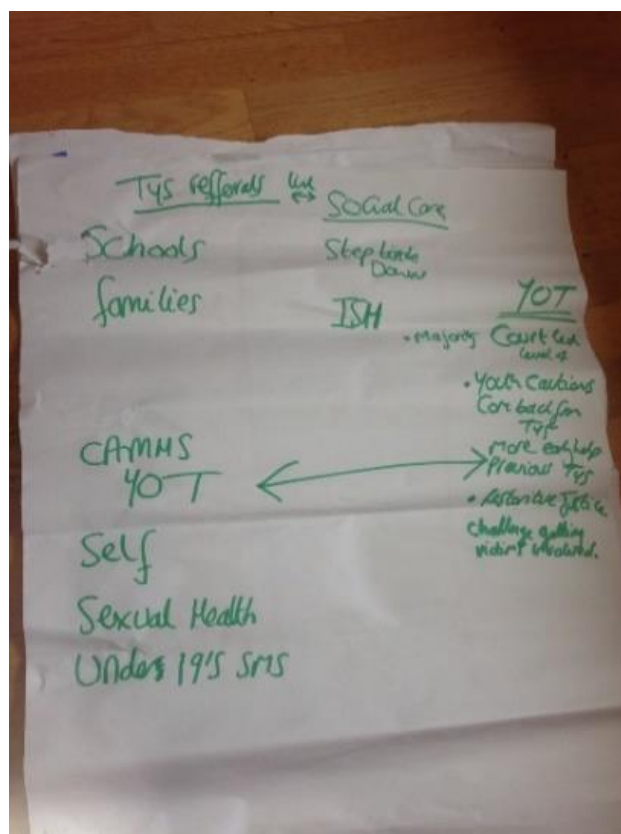 TYS refferals link ↔ Social Care
Schools
families
CAMHS
YOT
Self
Sexual Health
Under 19's SMS
Step
Down
ISH
YOT
• Majority Court
level 4
• Youth Cautions
Come back from
TYS
More early help
Previous TYS
• Restorative Justice
challenge getting
victims involved.